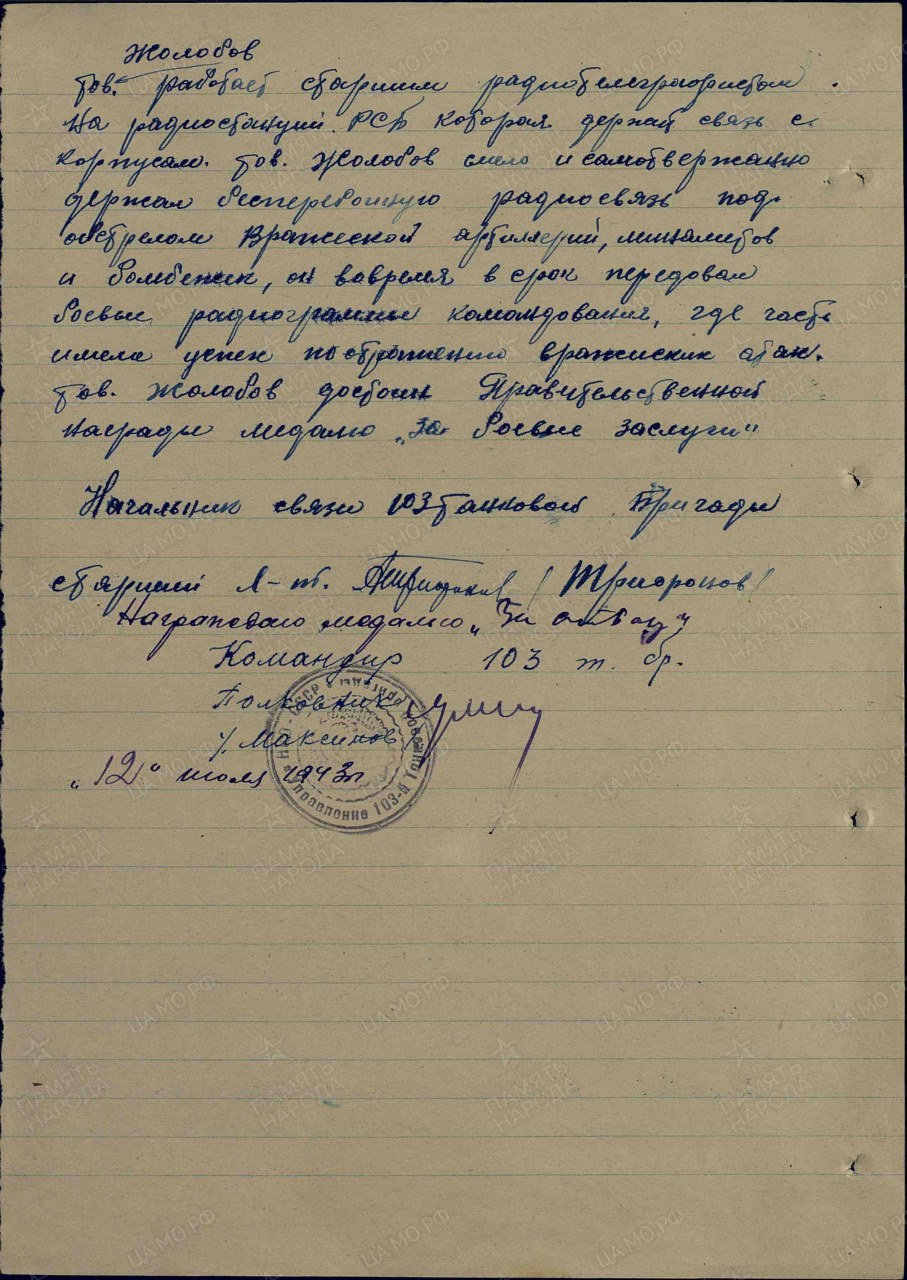 Жолобов
тов. работает старшим радиотелеграфистом.
На радиостанций РСБ которая держит связь с
корпусам. тов. Жолобов смело и самотвержанно
держал бесперебойную радиосвязь под
обстрелом вражеской артиллерий, минамитов
и бомбежик, он вовремя в срок передовал
боевые радиограммы командования, где часть
имела успех по отражению вражиских атак.
тов. Жолобов достоин Правительственной
награды медалю „За боевые заслуги"
Начальник связи 103 танковой Бригады
старший л-т. (Трифонов)
Награждаю медалью „За отвагу"
Командир 103 т. бр.
Полковник
/. Максимов/
„12" июля 1943г
Управление 103-й Танковой бригады НКО-СССР